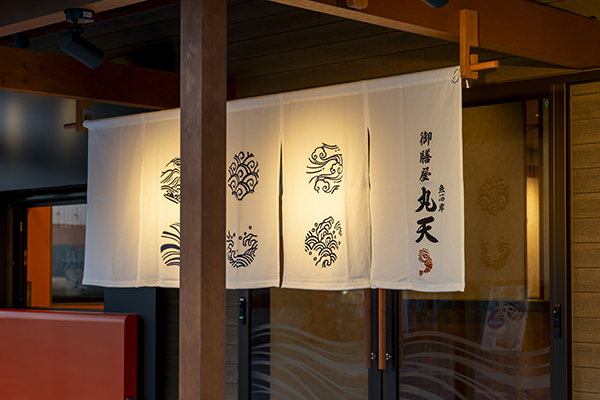 御膳屋
魚河岸
丸天